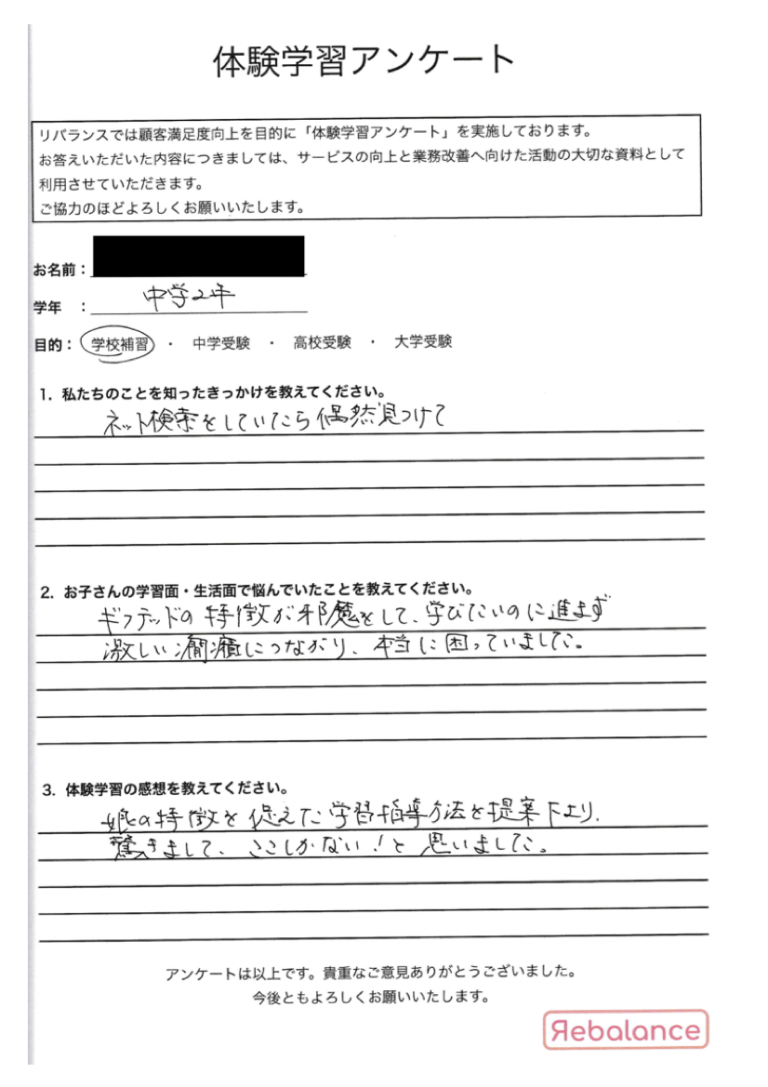 体験学習アンケート
リバランスでは顧客満足度向上を目的に「体験学習アンケート」を実施しております。
お答えいただいた内容につきましては、サービスの向上と業務改善へ向けた活動の大切な資料として
利用させていただきます。
ご協力のほどよろしくお願いいたします。
お名前：
学年　：中学2年
目的：学校補習　・　中学受験　・　高校受験　・　大学受験
1. 私たちのことを知ったきっかけを教えてください。
ネット検索をしていたら偶然見つけて
2. お子さんの学習面・生活面で悩んでいたことを教えてください。
ギフテッドの特徴が邪魔をして、学びたいのに進まず
激しい癇癪につながり、本当に困っていました。
3. 体験学習の感想を教えてください。
娘の特徴を捉えた学習指導方法を提案下さり、
驚きまして、ここしかない！と思いました。
アンケートは以上です。貴重なご意見ありがとうございました。
今後ともよろしくお願いいたします。
Rebalance